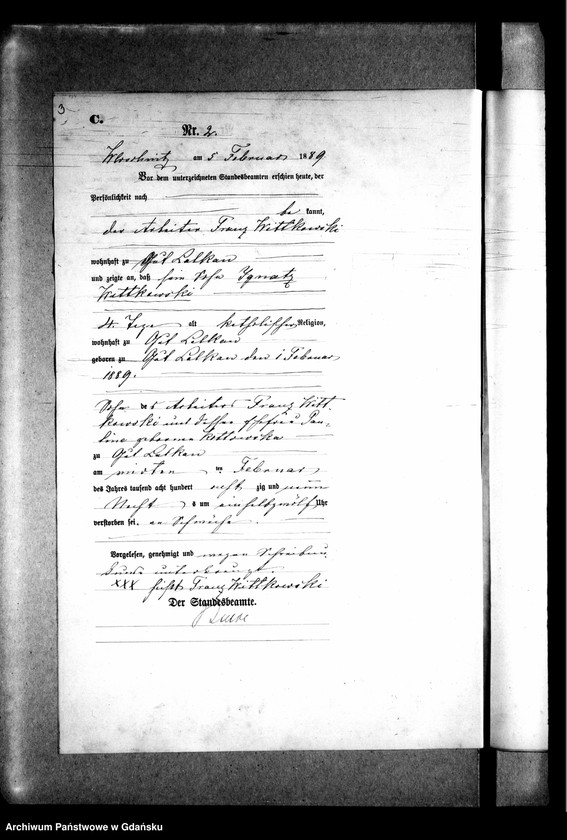 3
C.
Nr. 2.
am 5 Februar 1889
Vor dem unterzeichneten Standesbeamten erschien heute, der
Persönlichkeit nach
be kannt,
der Arbeiter Franz Wittkowski
wohnhaft zu Gut Lalkau
und zeigte an, daß sein Sohn Ignatz
Wittkowski
4 Tage alt katholischer Religion,
wohnhaft zu Gut Lalkau
geboren zu Gut Lalkau den 1 Februar
1889.
Sohn des Arbeiters Franz Witt-
kowski und dessen Ehefrau Pau-
line geborene Kottowska
zu Gut Lalkau
am vierten Februar
des Jahres tausend acht hundert acht zig und neun
Nacht s um einhalbzwölf Uhr
verstorben sei, an Schwäche.
Vorgelesen, genehmigt und wegen Schreibun-
kunde unterkreuzt.
XXX Franz Wittkowski
Der Standesbeamte.
Archiwum Państwowe w Gdańsku